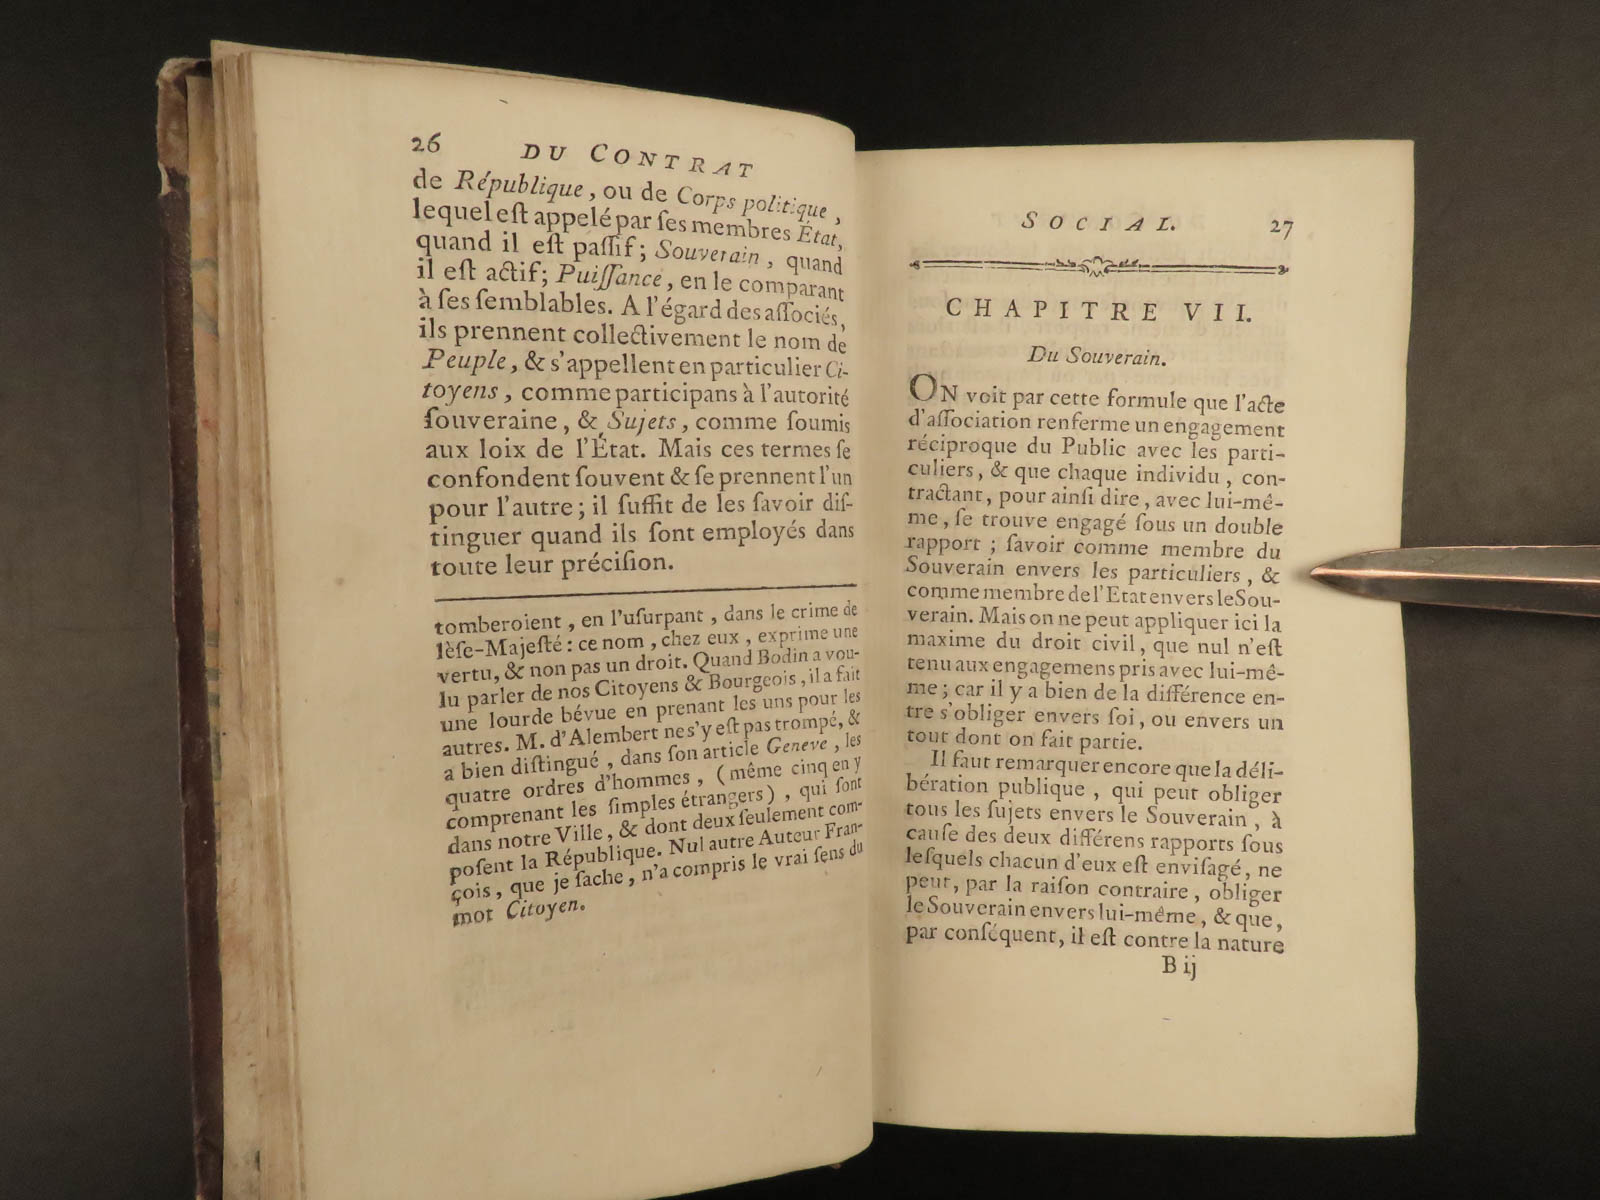 26 DU CONTRAT
de République, ou de Corps politique,
lequel eſt appelé par ſes membres État,
quand il eſt paſſif; Souverain, quand
il eſt actif; Puiſſance, en le comparant
à ſes ſemblables. A l'égard des aſſociés,
ils prennent collectivement le nom de
Peuple, & s'appellent en particulier Ci-
toyens, comme participans à l'autorité
ſouveraine, & Sujets, comme ſoumis
aux loix de l'État. Mais ces termes ſe
confondent ſouvent & ſe prennent l'un
pour l'autre; il ſuffit de les ſavoir diſ-
tinguer quand ils ſont employés dans
toute leur préciſion.
tomberoient, en l'uſurpant, dans le crime de
lèſe-Majeſté: ce nom, chez eux, exprime une
vertu, & non pas un droit. Quand Bodin a vou-
lu parler de nos Citoyens & Bourgeois, il a fait
une lourde bévue en prenant les uns pour les
autres. M. d'Alembert ne s'y eſt pas trompé, &
a bien diſtingué, dans ſon article Geneve, les
quatre ordres d'hommes, (même cinq en y
comprenant les ſimples étrangers), qui ſont
dans notre Ville, & dont deux ſeulement com-
poſent la République. Nul autre Auteur Fran-
çois, que je ſache, n'a compris le vrai ſens du
mot Citoyen.
SOCIAL. 27
CHAPITRE VII.
Du Souverain.
ON voit par cette formule que l'acte
d'aſſociation renferme un engagement
réciproque du Public avec les parti-
culiers, & que chaque individu, con-
tractant, pour ainſi dire, avec lui-mê-
me, ſe trouve engagé ſous un double
rapport; ſavoir comme membre du
Souverain envers les particuliers, &
comme membre de l'Etat envers le Sou-
verain. Mais on ne peut appliquer ici la
maxime du droit civil, que nul n'eſt
tenu aux engagemens pris avec lui-mê-
me; car il y a bien de la différence en-
tre s'obliger envers ſoi, ou envers un
tout dont on fait partie.
Il faut remarquer encore que la déli-
bération publique, qui peut obliger
tous les ſujets envers le Souverain, à
cauſe des deux différens rapports ſous
leſquels chacun d'eux eſt enviſagé, ne
peut, par la raiſon contraire, obliger
le Souverain envers lui-même, & que,
par conſéquent, il eſt contre la nature
B ij